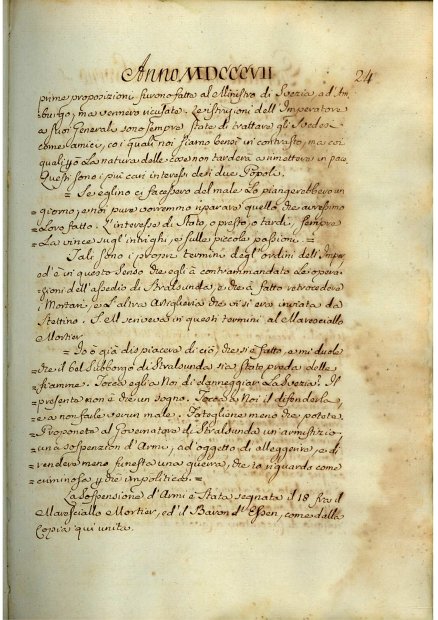 Anno MDCCCVII 24
prime proposizioni furono fatte al Ministro di Svezia, ad Am-
burgo, ma vennero ricusate. Le istruzioni dell'Imperatore
a' suoi Generali sono sempre state di trattare gli Svedesi
come amici, coi quali noi siamo bensì in contrasto, ma coi
quali la natura delle cose non tarderà a metterci in pace.
Questi sono i più cari interessi dei due Popoli.
= Se eglino ci facessero del male lo piangerebbero un
= giorno, e noi pure vorremmo riparare quello che avressimo
= loro fatto. L'interesse di Stato, o presto, o tardi, sempre
= la vince sugl'intrighi, e sulle piccole passioni. =
Tali sono i propri termini degl'ordini dell'Imper.
ed è in questo senso che egli à contrammandato le opera-
zioni dell'assedio di Stralsunda, e che à fatto retrocedere
i Mortari, e l'altra Artiglieria che vi si era inviata da
Stettino. S. M. scriveva in questi termini al Maresciallo
Mortier.
= Io ò già dispiacere di ciò, che si è fatto, e mi duole
= che il bel Subborgo di Stralsunda sia stato preda delle
= fiamme. Tocca egli a Noi di danneggiar la Svezia? Il
= presente non è che un sogno. Tocca a Noi il difenderla
= e a non farle verun male. Fatogliene meno che potete.
= Proponete al Governatore di Stralsunda un'armistizio
= una sospension d'Armi, ad'oggetto di alleggerire, e di
= rendere meno funesta una guerra, che io riguardo come
= criminosa, perche impolitica. =
La sospensione d'Armi è stata segnata il 18 fra il
Maresciallo Mortier, ed'il Baron d'Essen, come dalla
Copia qui unita.